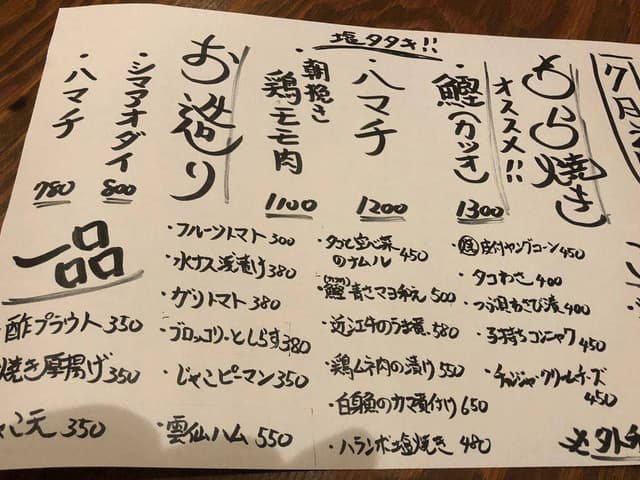 わら焼き
オススメ!!
塩タタキ!!
・鰹(カツオ)
1300
・ハマチ
1200
・朝挽き
鶏モモ肉
1100
お造り
・シマアオダイ
800
・ハマチ
780
一品
・フルーツトマト 300
・水ナス浅漬け 380
・ガリトマト 380
・ブロッコリーとしらす 380
・じゃこピーマン 350
・雲仙ハム 550
酢プラウト 350
焼き厚揚げ 350
こ天 350
・タコと空心菜
のナムル 450
・鰹 青さマヨ和え 500
・近江牛のうま煮 580
・鶏ムネ肉の漬け 550
・白身魚のカマ煮付け 650
・ハランボ塩焼き 480
皮付ヤングコーン 450
・タコわさ 400
・つぶ貝わさび漬 400
・子持ちコンニャク 450
・チャンジャクリームチーズ
450